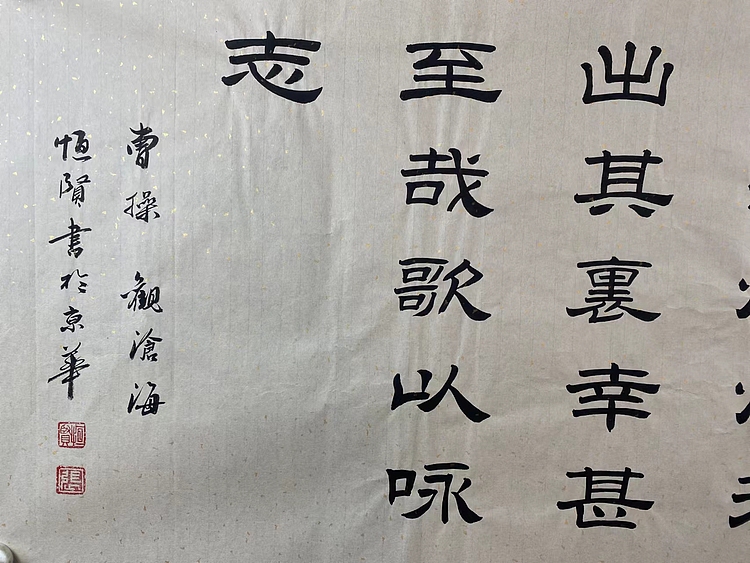 出其裏幸甚
至哉歌以咏
志
曹操 觀滄海
恒賢書於京華
恒賢
張